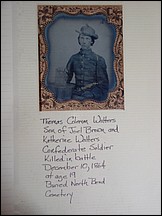 Thomas Colmam Walters
Son of Joel Brown and
Katherine Walters
Confederate Soldier
Killed in battle
December 10, 1864
at age 19
Buried North Bend
Cemetery